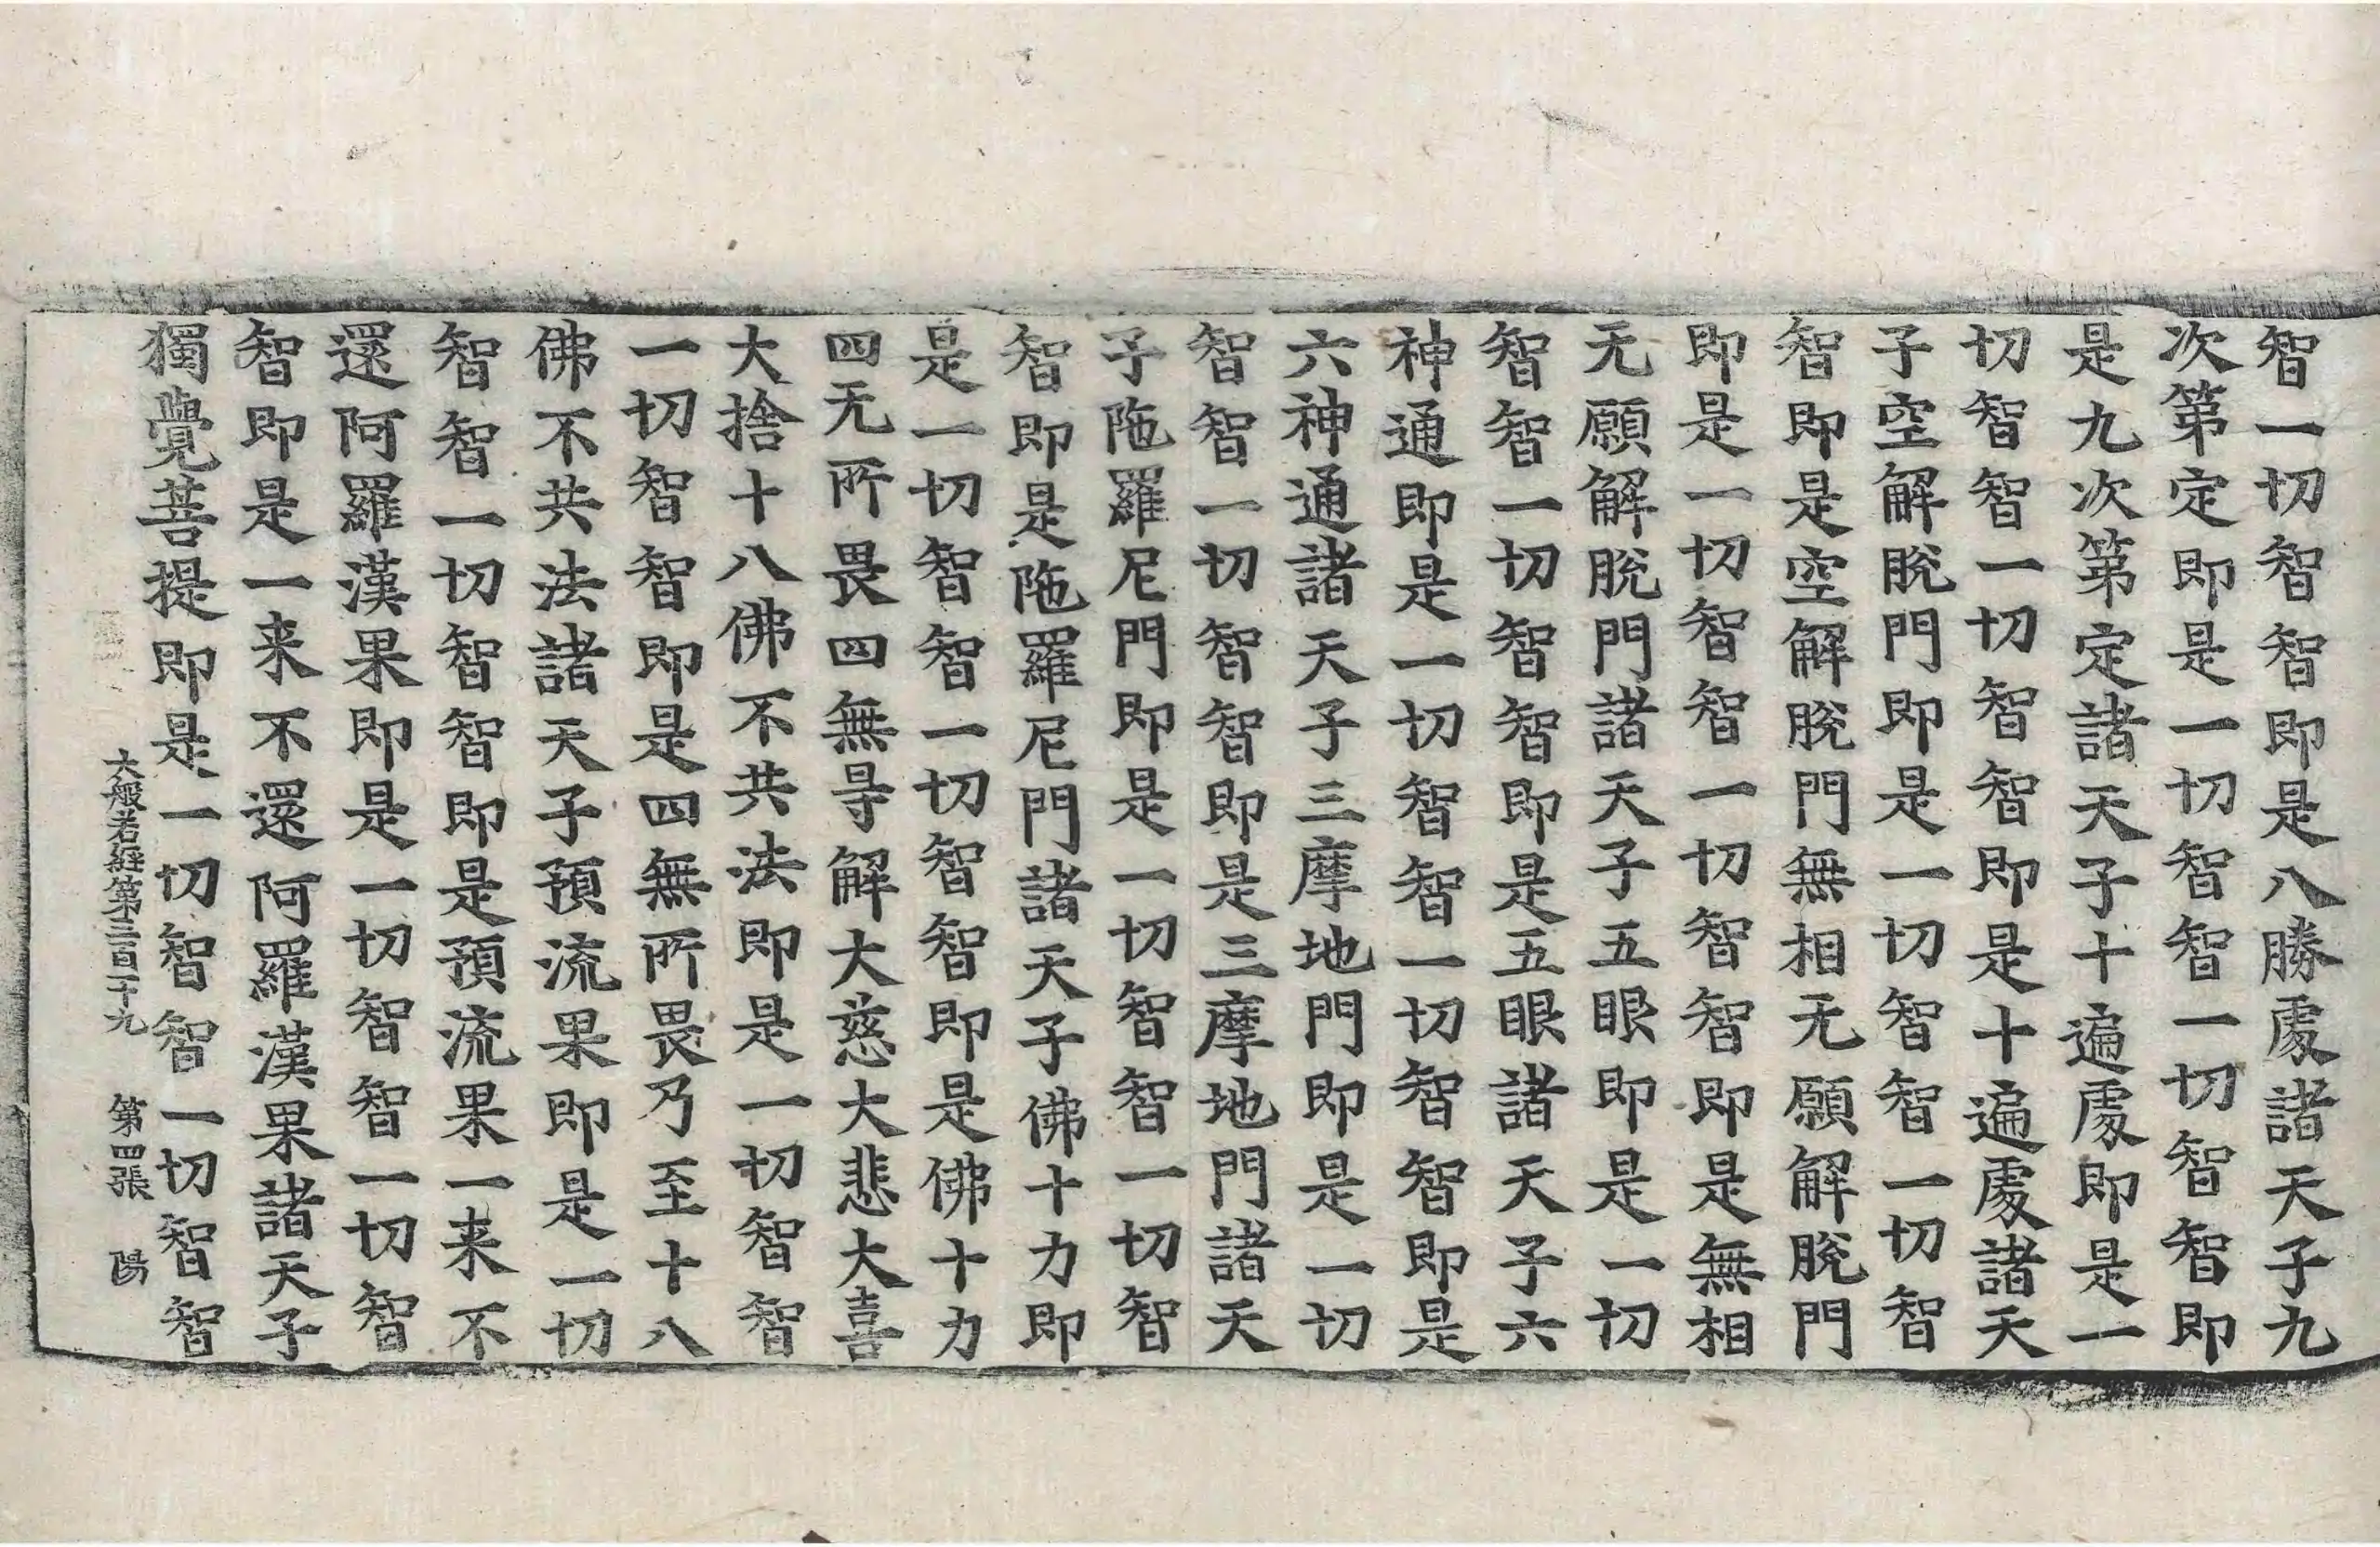 智一切智智即是八勝處諸天子九
次第定即是一切智智一切智智即
是九次第定諸天子十遍處即是一
切智智一切智智即是十遍處諸天
子空解脫門即是一切智智一切智
智即是空解脫門無相无願解脫門
即是一切智智一切智智即是無相
无願解脫門諸天子五眼即是一切
智智一切智智即是五眼諸天子六
神通即是一切智智一切智智即是
六神通諸天子三摩地門即是一切
智智一切智智即是三摩地門諸天
子陁羅尼門即是一切智智一切智
智即是陁羅尼門諸天子佛十力即
是一切智智一切智智即是佛十力
四无所畏四無㝵解大慈大悲大喜
大捨十八佛不共法即是一切智智
一切智智即是四無所畏乃至十八
佛不共法諸天子預流果即是一切
智智一切智智即是預流果一来不
還阿羅漢果即是一切智智一切智
智即是一来不還阿羅漢果諸天子
獨覺菩提即是一切智智一切智智
大般若經第三百二十九 第四張 陽